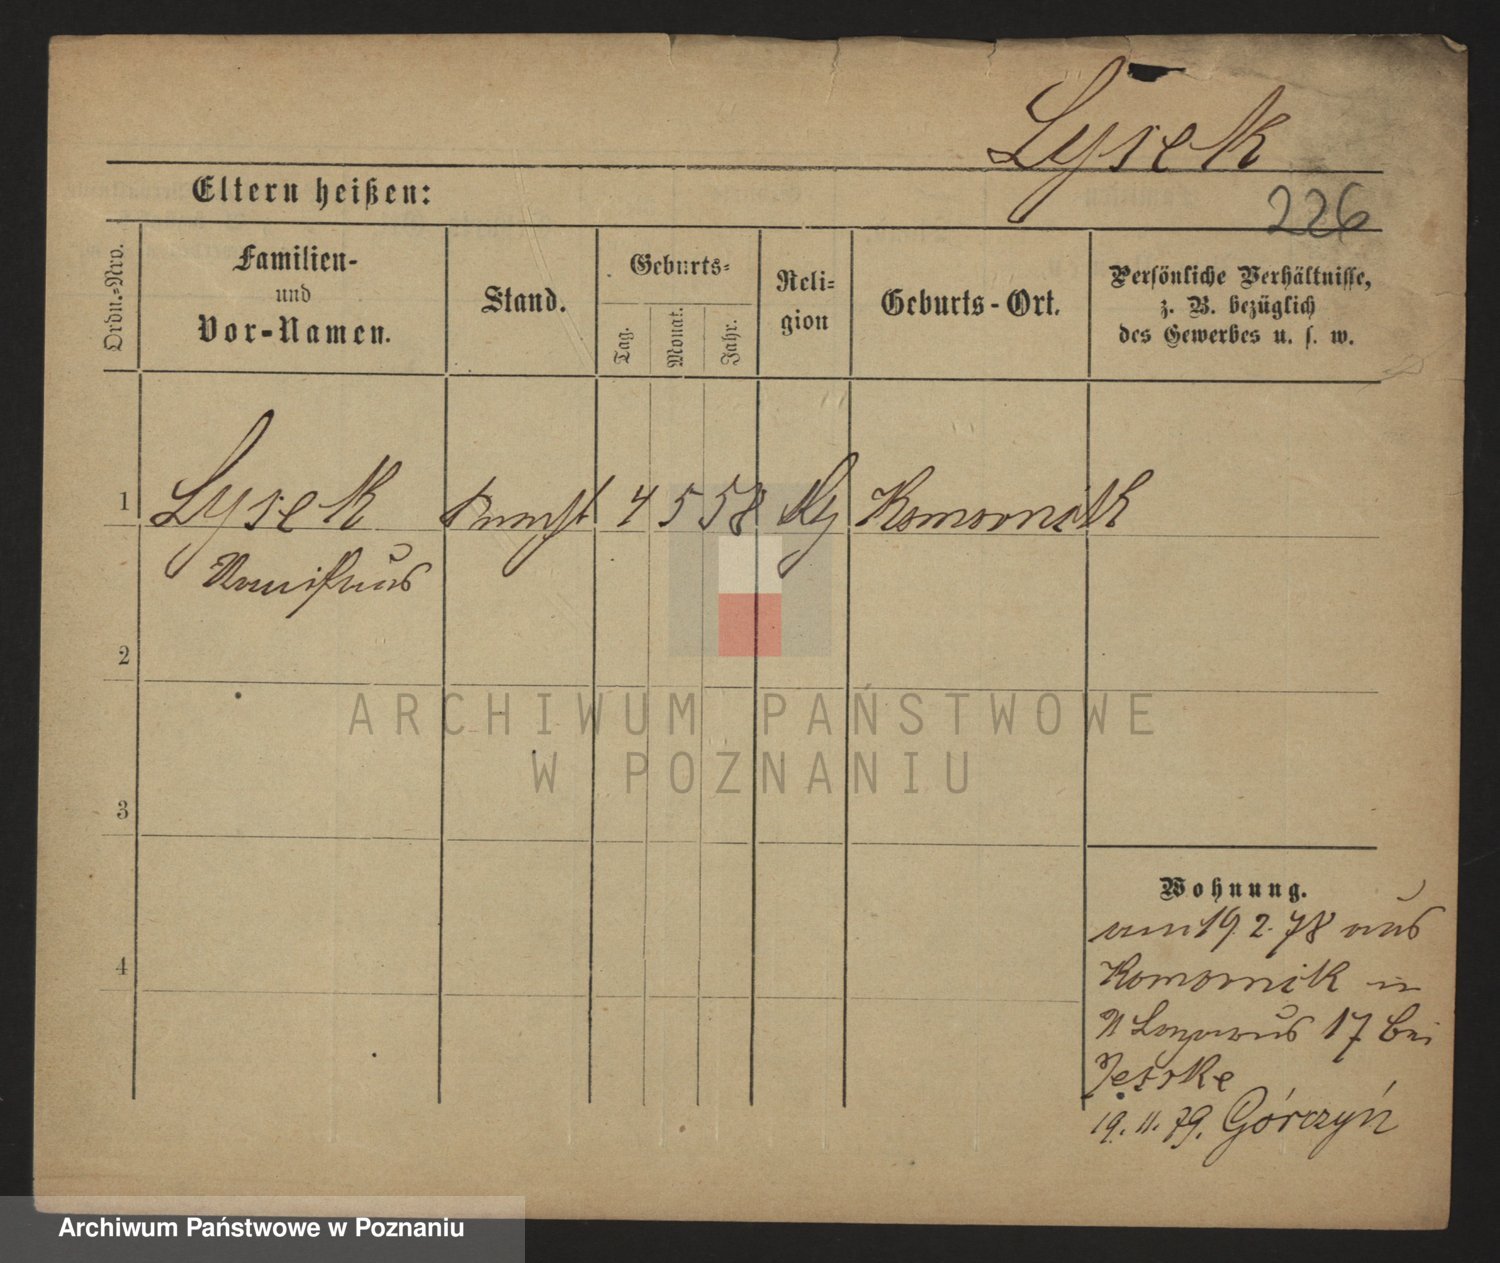 Lysek
226
Eltern heißen:
Ordn.-Nro.
Familien-
und
Vor-Namen.
Stand.
Geburts-
Tag.
Monat.
Jahr.
Reli-
gion
Geburts-Ort.
Persönliche Verhältnisse,
z. B. bezüglich
des Gewerbes u. s. w.
1
Lysek
4
5
58
Komornik
2
3
4
ARCHIWUM PAŃSTWOWE
W POZNANIU
Wohnung.
am 19. 2. 78 aus
Komornik in
Lazarus 17 bei
Jeske
19. 11. 79. Górczyń
Archiwum Państwowe w Poznaniu